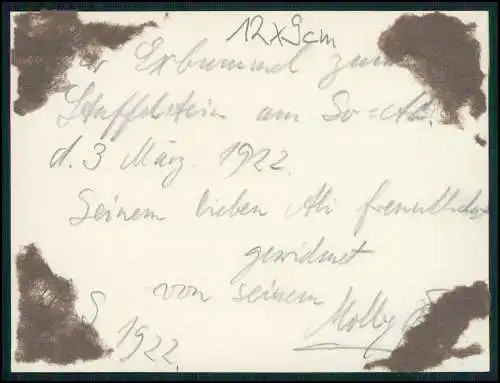 12x9cm
Exbummel zum
Staffelstein am So=Ab.
d. 3 März. 1922.
Seinem lieben Ali freundlichst
gewidmet
von seinem Molly
S
1922.